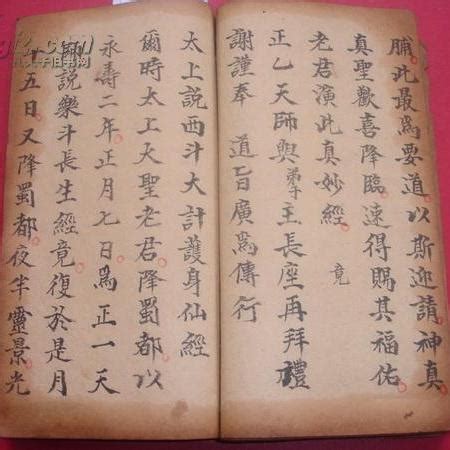 脯此最為要道以斯迎請神真
真聖歡喜降臨速得賜其福佑
老君演此真妙經 竟
正乙天師與弟子主長座再拜禮
謝謹奉 道旨廣為傳行
太上說西斗大計護身仙經
爾時太上大聖老君降蜀都以
永壽二年正月七日為正一天
師說衆斗長生經竟復於是月
五日又降蜀都夜半靈景光
旧书网